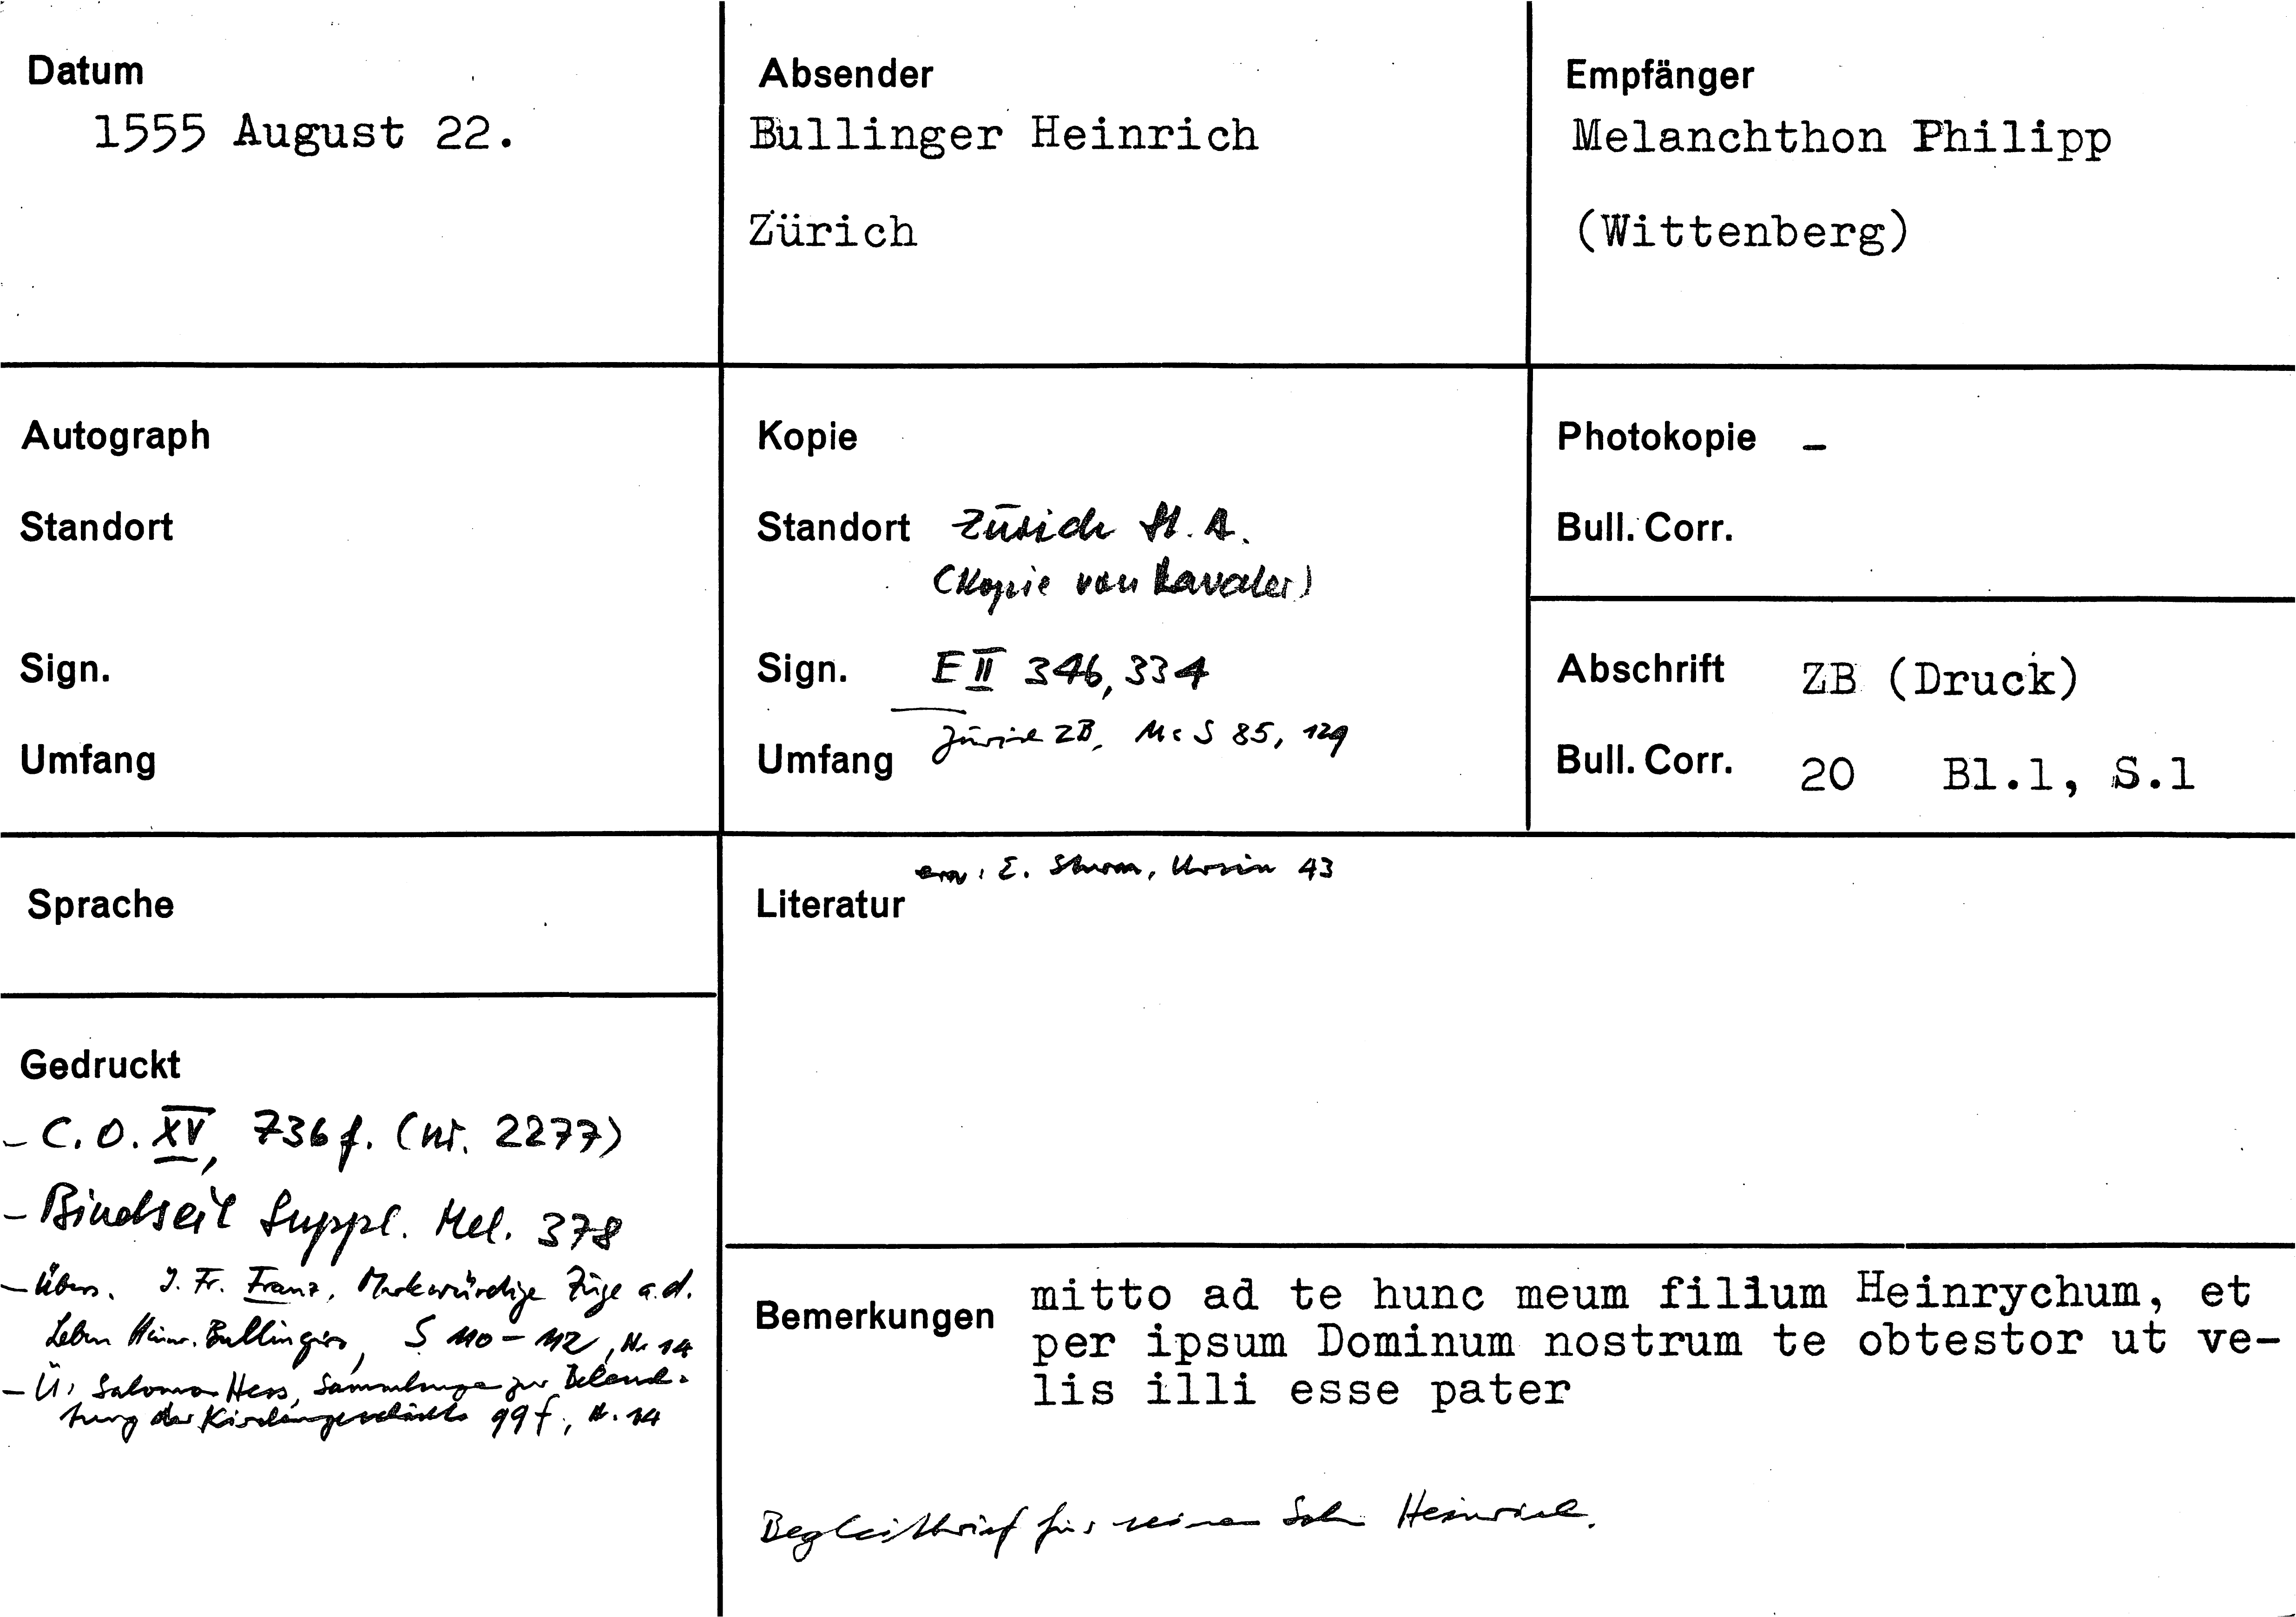 Datum
1555 August 22.
Absender
Bullinger Heinrich
Zürich
Empfänger
Melanchthon Philipp
(Wittenberg)
Autograph
Standort
Sign.
Umfang
Kopie
Standort Zürich St. A.
(Kopie von Lavater)
Sign. E II 346, 334
Zürich ZB, Ms S 85, 129
Umfang
Photokopie –
Bull. Corr.
Abschrift ZB (Druck)
Bull. Corr. 20 Bl.1, S.1
Sprache
Gedruckt
– C. O. XV, 736 f. (nr. 2277)
– Bindseil Suppl. Mel. 378
– Übers. J. Fr. Franz, Merkwürdige Züge a. d.
Leben Heinr. Bullingers, S 110 – 112, Nr 14
– Ü: Salomon Hess, Sammlungen zur Beleuch-
tung der Kirchengeschichte 99 f, N. 14
erw: E. Sturm, Ursin 43
Literatur
Bemerkungen mitto ad te hunc meum filium Heinrychum, et
per ipsum Dominum nostrum te obtestor ut ve-
lis illi esse pater
Begleitbrief für seinen Sohn Heinrich.